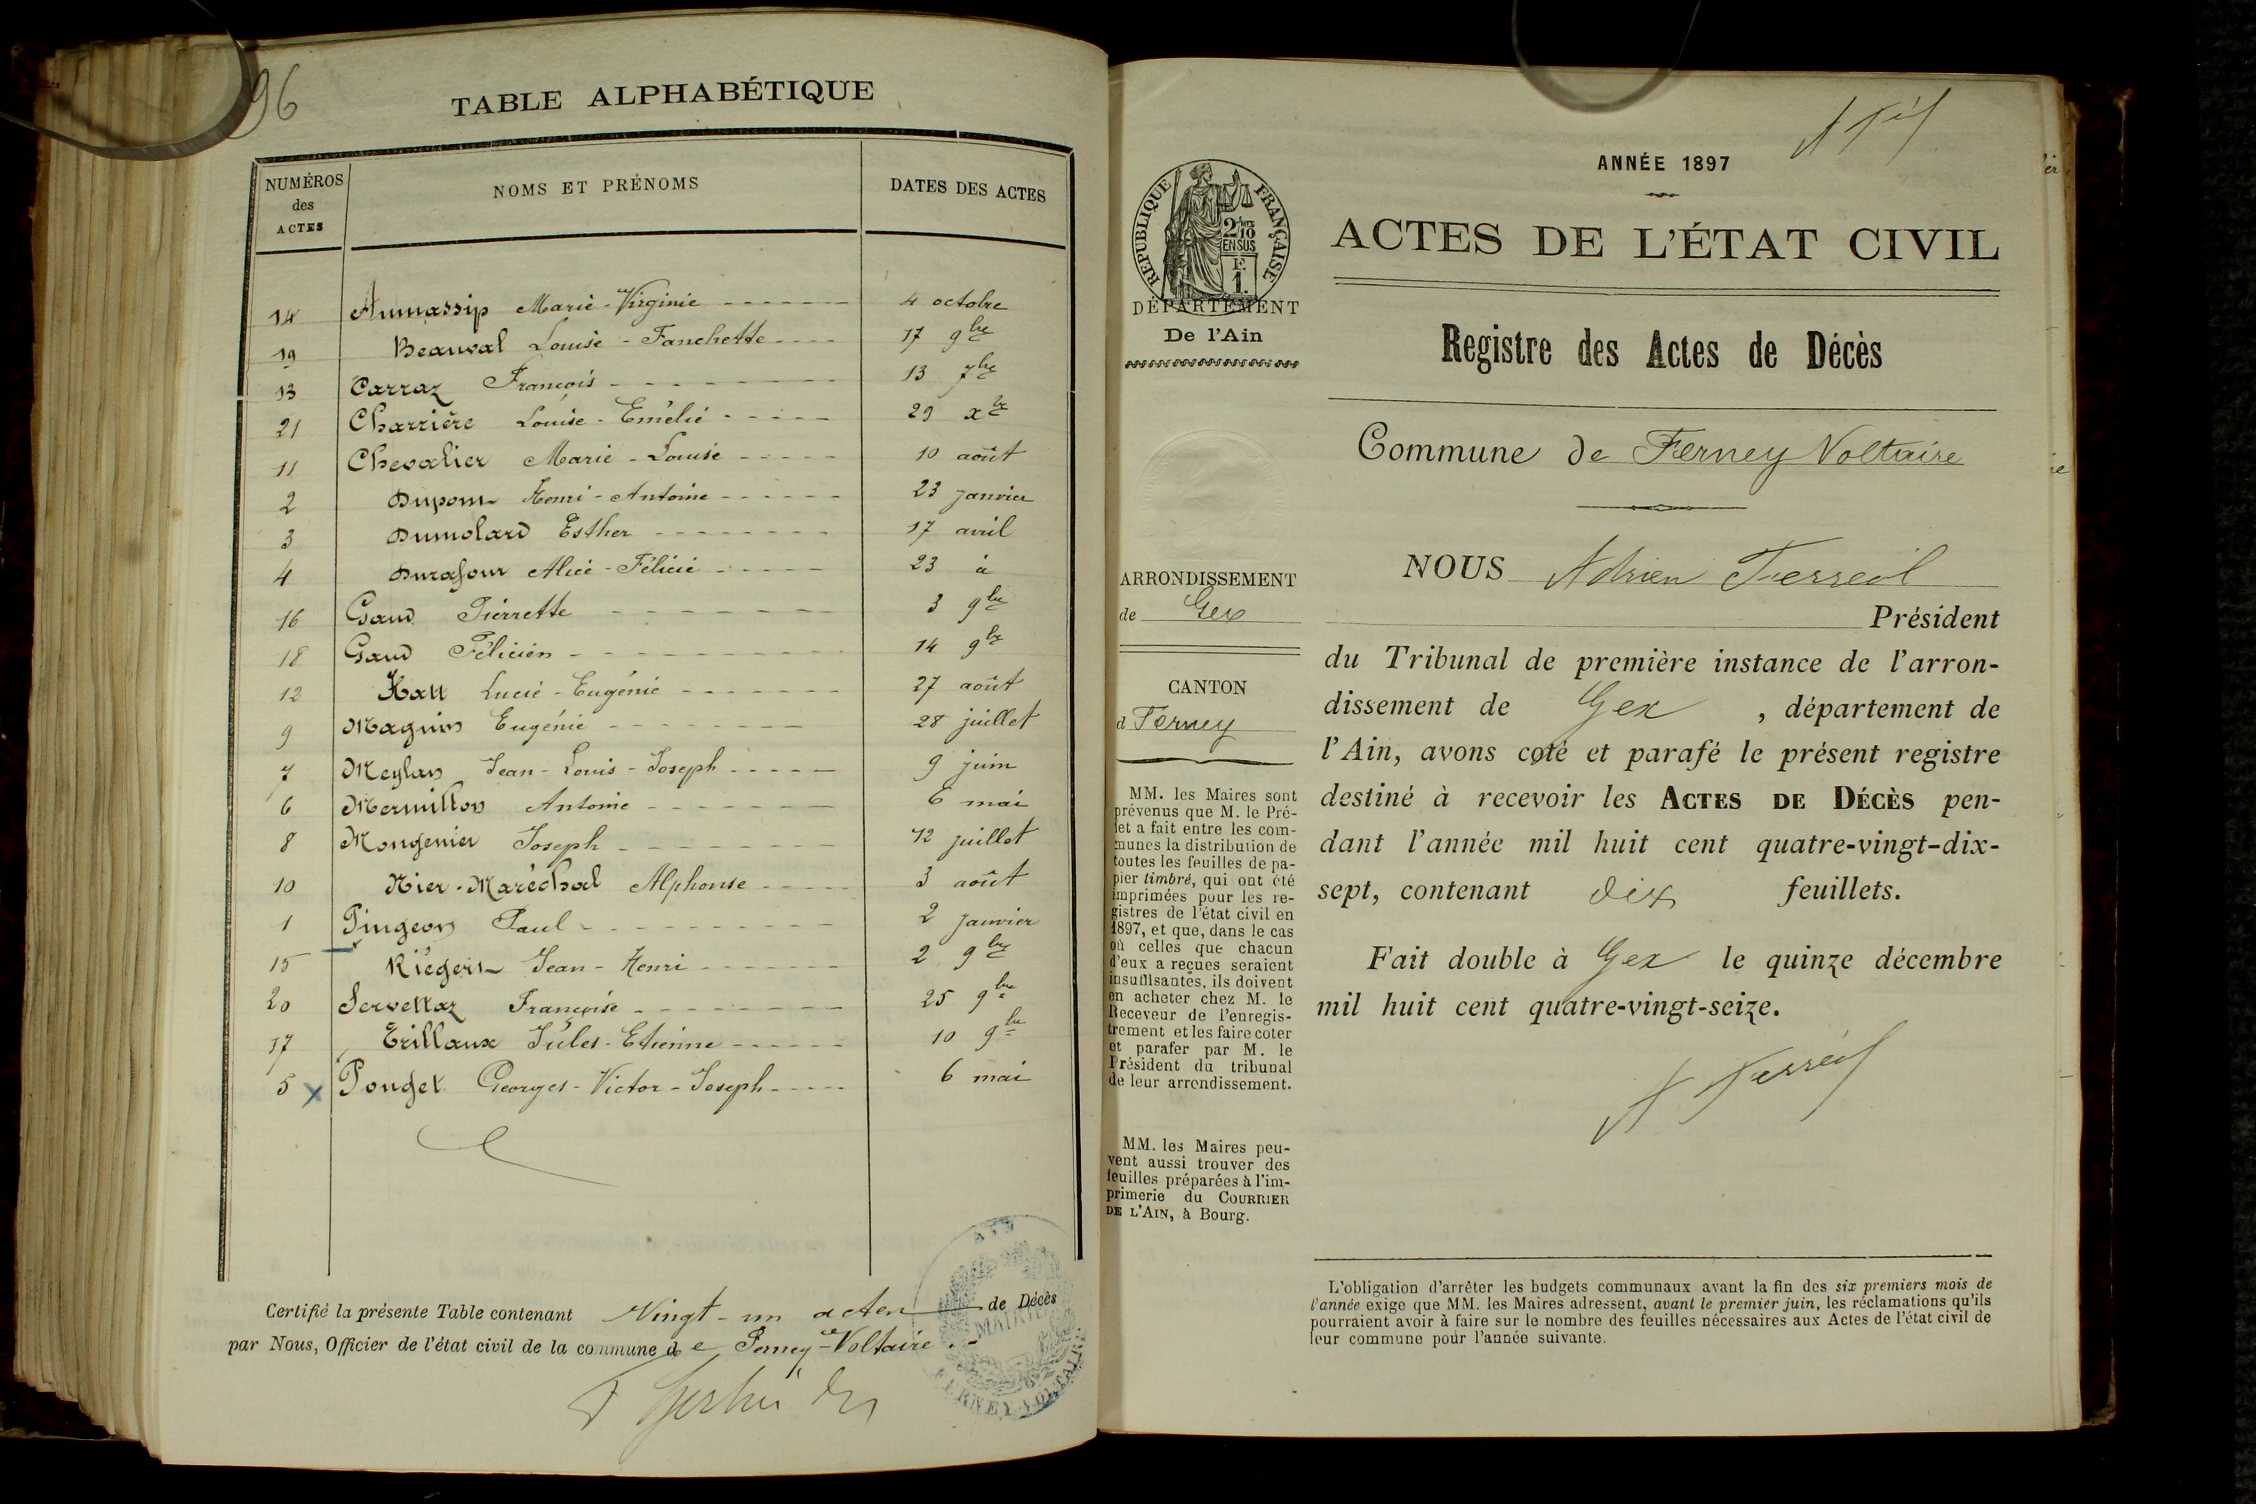 96
TABLE ALPHABÉTIQUE
NUMÉROS des ACTES NOMS ET PRÉNOMS DATES DES ACTES
14 Aumassip Marie-Virginie 4 octobre
19 Beauval Louise-Fanchette 17 9bre
13 Carraz François 13 7bre
21 Charrière Louise-Emélie 29 xbre
11 Chevalier Marie-Louise 10 août
2 Dupont Henri-Antoine 23 janvier
3 Dumolard Esther 17 avril
4 Durafour Alice-Félicie 23 d
16 Gaud Pierrette 3 9bre
18 Gaud Félicien 14 9bre
12 Katt Lucie-Eugénie 27 août
9 Magnin Eugénie 28 juillet
7 Meylan Jean-Louis-Joseph 9 juin
6 Mermillon Antoine 6 mai
8 Mongenier Joseph 12 juillet
10 Nier-Maréchal Alphonse 3 août
1 Pingeon Paul 2 janvier
15 Riégert Jean-Henri 2 9bre
20 Servettaz Françoise 25 9bre
17 Trillaux Jules-Etienne 10 9bre
5 x Pouget Georges-Victor-Joseph 6 mai
Certifié la présente Table contenant Vingt-un actes de Décès
par Nous, Officier de l'état civil de la commune de Ferney-Voltaire.
AIN
MAIRIE
FERNEY-VOLTAIRE
ANNÉE 1897
ACTES DE L'ÉTAT CIVIL
Registre des Actes de Décès
Commune de Ferney Voltaire
NOUS Adrien Ferreol
Président
du Tribunal de première instance de l'arron-
dissement de Gex, département de
l'Ain, avons coté et parafé le présent registre
destiné à recevoir les ACTES DE DÉCÈS pen-
dant l'année mil huit cent quatre-vingt-dix-
sept, contenant dix feuillets.
Fait double à Gex le quinze décembre
mil huit cent quatre-vingt-seize.
A Ferréol
L'obligation d'arrêter les budgets communaux avant la fin des six premiers mois de
l'année exige que MM. les Maires adressent, avant le premier juin, les réclamations qu'ils
pourraient avoir à faire sur le nombre des feuilles nécessaires aux Actes de l'état civil de
leur commune pour l'année suivante.
RÉPUBLIQUE FRANÇAISE
2/10
EN SUS
F.
1.
DÉPARTEMENT
De l'Ain
ARRONDISSEMENT
de Gex
CANTON
d Ferney
MM. les Maires sont
prévenus que M. le Pré-
fet a fait entre les com-
munes la distribution de
toutes les feuilles de pa-
pier timbré, qui ont été
imprimées pour les re-
gistres de l'état civil en
1897, et que, dans le cas
où celles que chacun
d'eux a reçues seraient
insuffisantes, ils doivent
en acheter chez M. le
Receveur de l'enregis-
trement et les faire coter
et parafer par M. le
Président du tribunal
de leur arrondissement.
MM. les Maires peu-
vent aussi trouver des
feuilles préparées à l'im-
primerie du COURRIER
DE L'AIN, à Bourg.